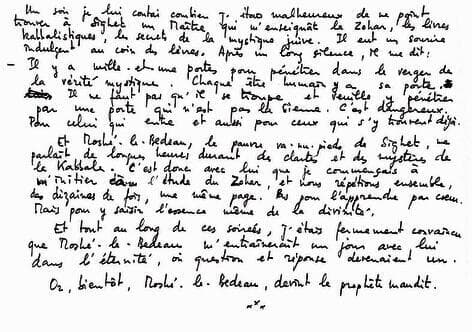 Un soir je lui contai combien j'étais malheureux de ne point
trouver à Sighet un Maître qui m'enseignât le Zohar, les livres
kabbalistiques, les secrets de la mystique juive. Il eut un sourire
indulgent au coin des lèvres. Après un long silence, il me dit:
- Il y a mille et une portes pour pénétrer dans le verger de
la vérité mystique. Chaque être humain y a sa porte.
Il ne faut pas qu'il se trompe et veuille y pénétrer
par une porte qui n'est pas la sienne. C'est dangereux.
Pour celui qui entre et aussi pour ceux qui s'y trouvent déjà.
Et Moshé-le-Bedeau, le pauvre va-nu-pieds de Sighet, me
parlait de longues heures durant des clartés et des mystères de
la Kabbale. C'est donc avec lui que je commençais à
m'initier à l'étude du Zohar, et nous répétions ensemble,
des dizaines de fois, une même page. Pas pour l'apprendre par cœur.
Mais pour y saisir l'essence même de la divinité.
Et tout au long de ces soirées, j'étais fermement convaincu
que Moshé-le-Bedeau m'entraînerait un jour avec lui
dans l'éternité, où question et réponse devenaient un.
Or, bientôt, Moshé-le-Bedeau, devint le prophète maudit.
***